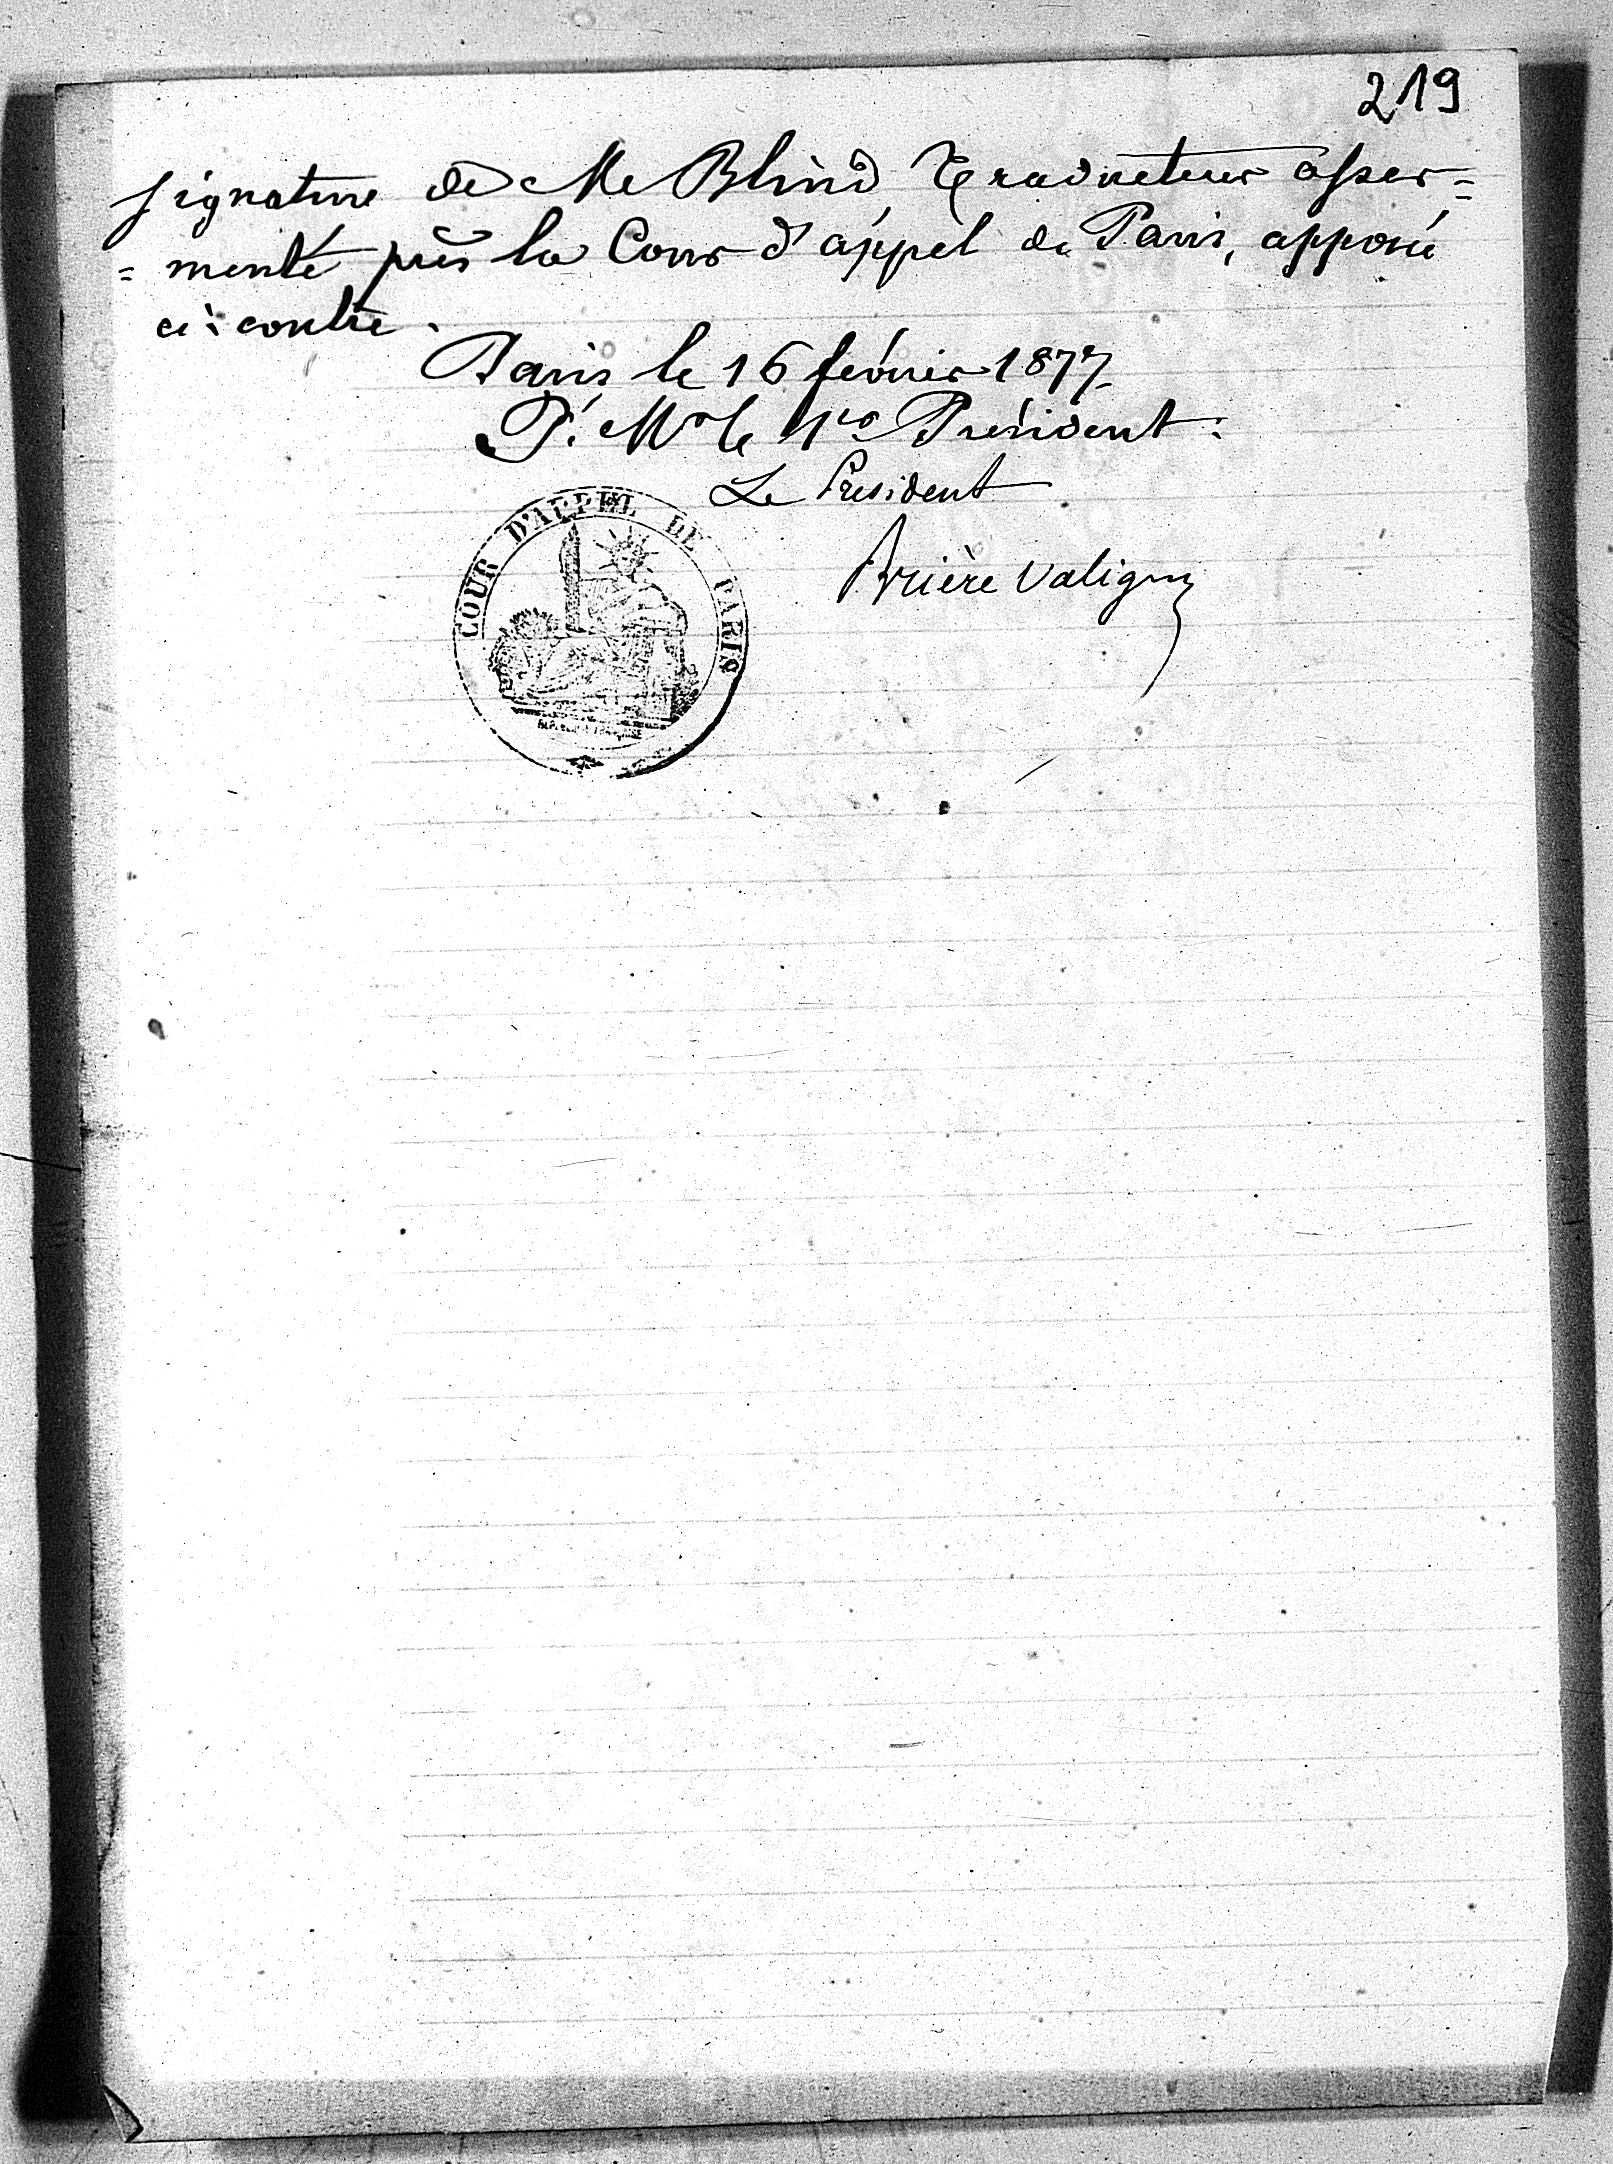 219
signature de Me Blind Traducteur asser=
=menté près la Cour d'appel de Paris, apposée
ci-contre.
Paris le 16 février 1877
P. Mr le 1er Président:
Le Président
COUR D'APPEL DE PARIS